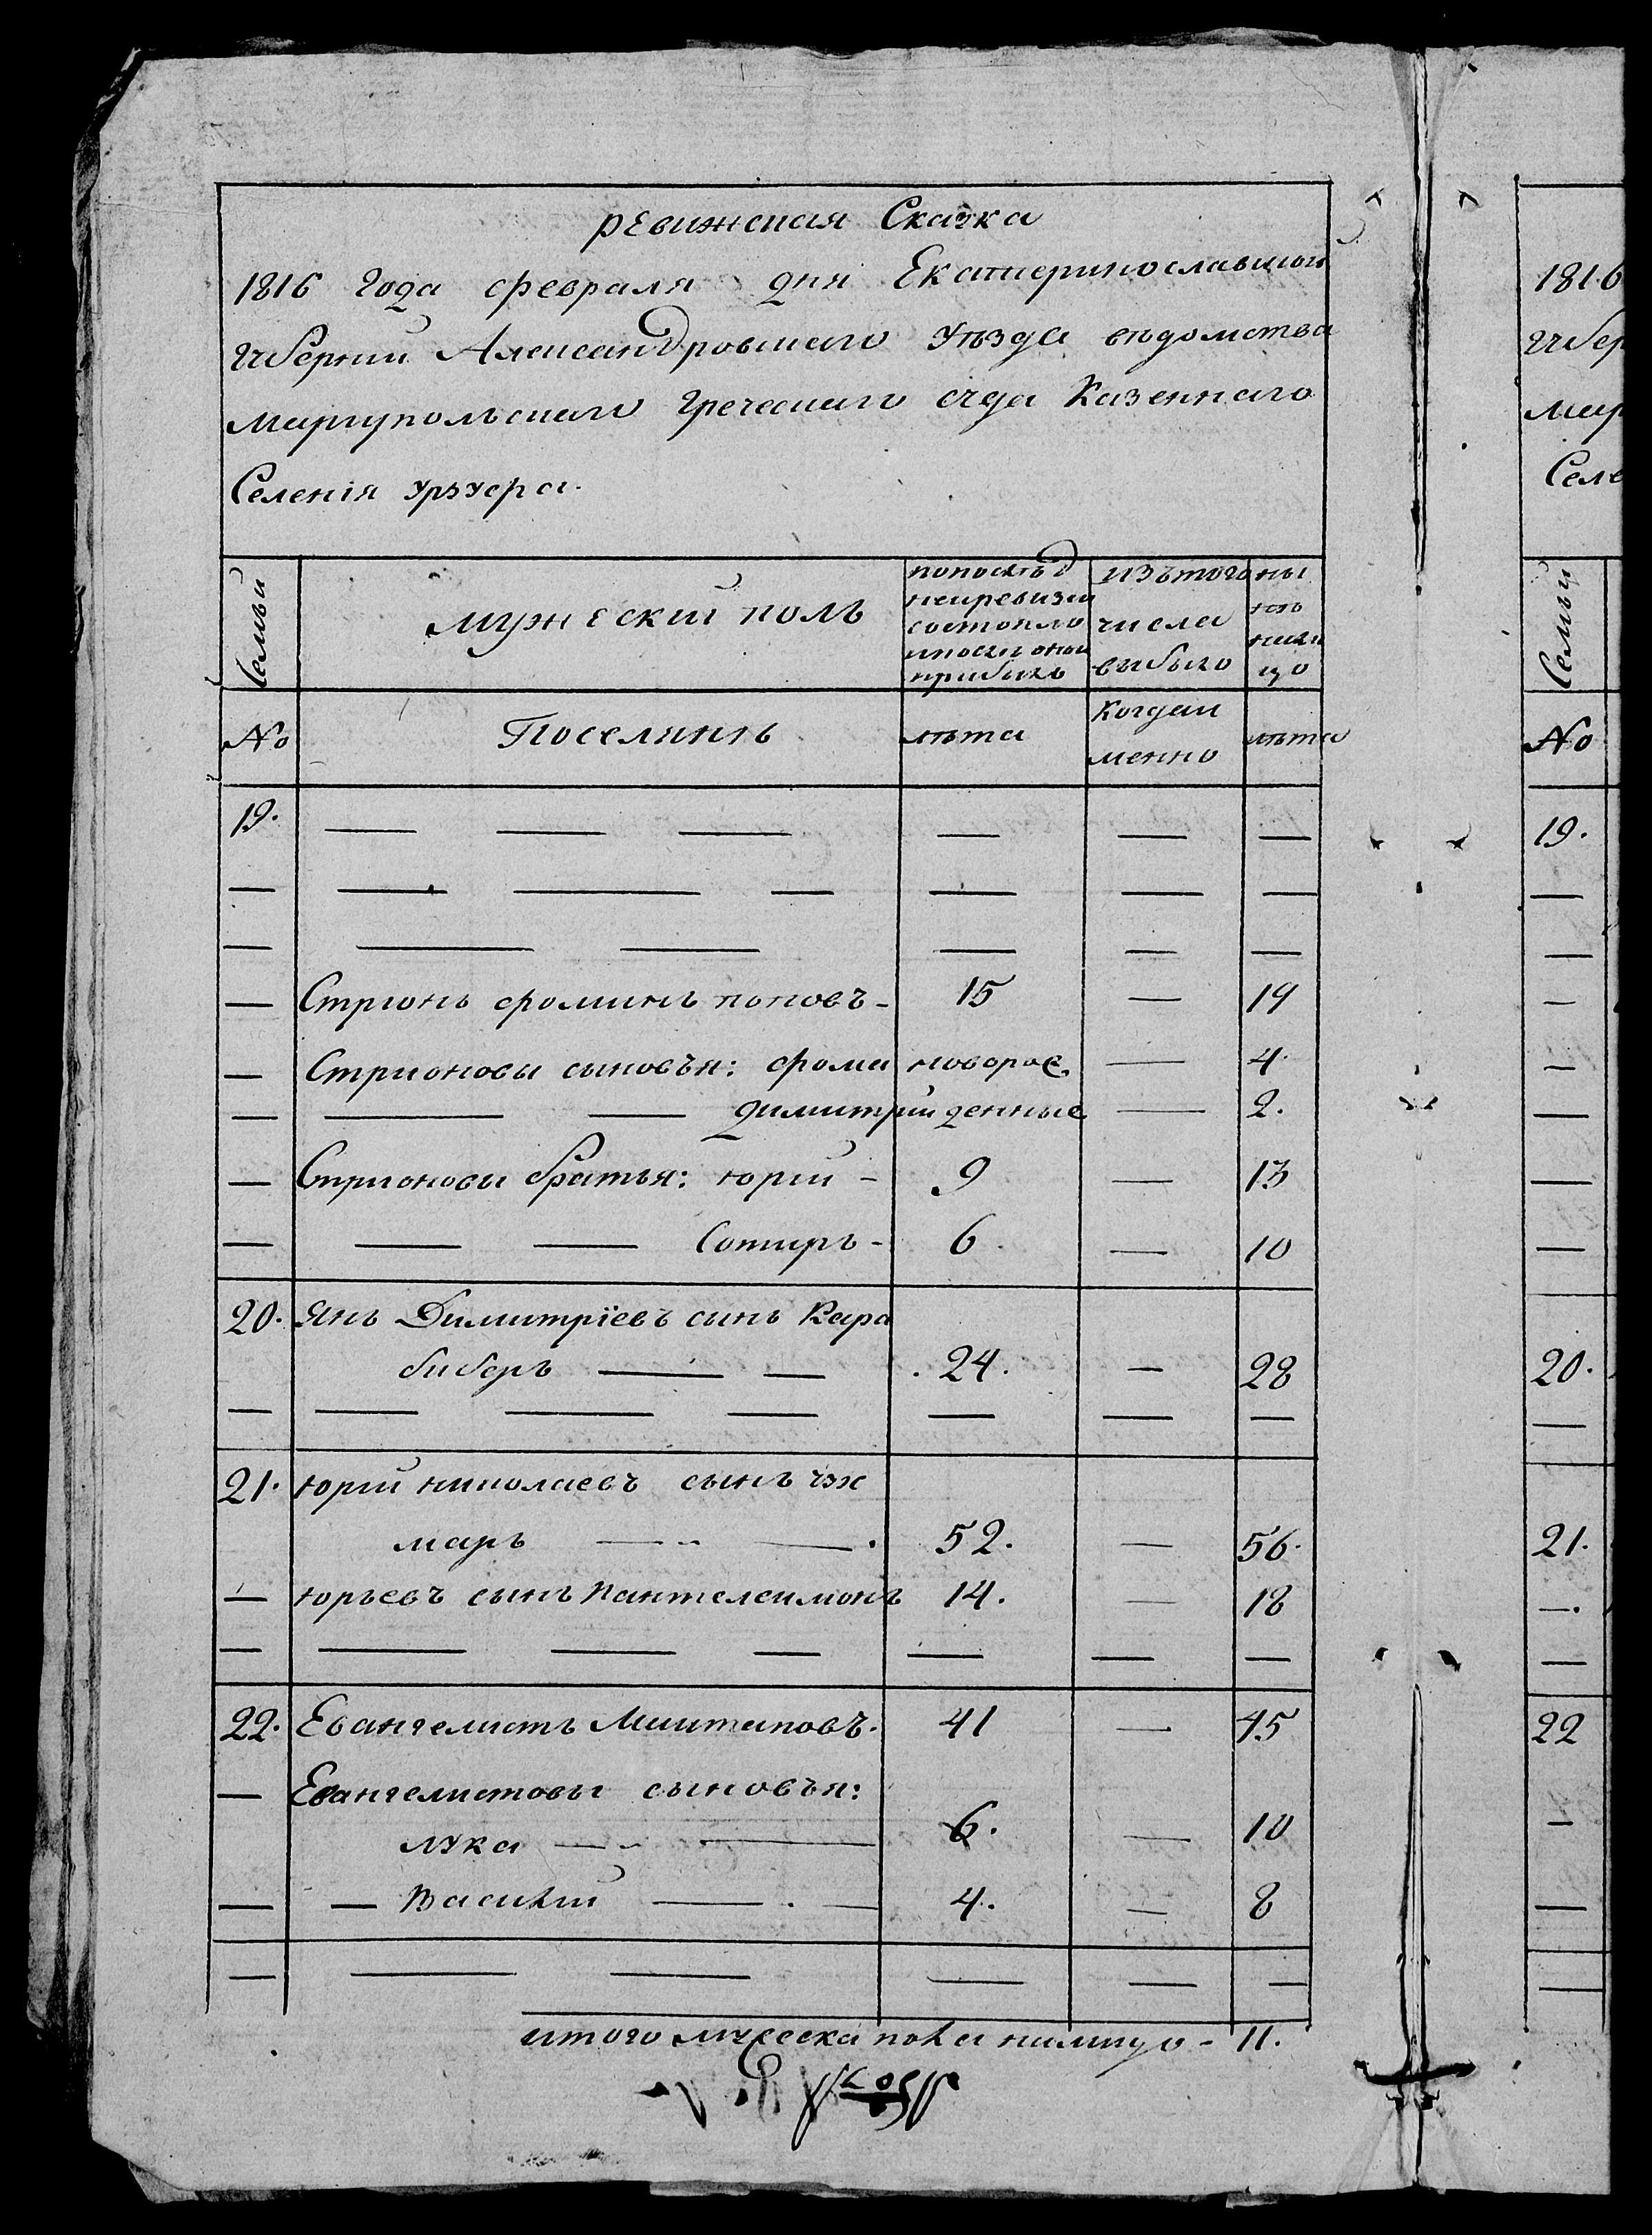 ревижская Сказка
1816 года февраля дня Екатеринославской
губернии Александровскаго уѣзда вѣдомства
мариупольскаго греческаго суда Казеннаго
Селенiя урзуфа.
Семьи
мужеский полъ
попослѣд
ней ревизии
состояло
и после оной
прибыло
изътого
числа
выбыло
ны
не
нали
цо
№
Поселянѣ
лѣта
Когдаи
менно
лѣта
19. — — — — — —
— — — — — — —
— — — — — —
— Стрионъ фоминъ поповъ - 15 — 19
— Стрионовы сыновья: фома новорос — 4.
— — — Димитрий денные — 2.
— Стрионовы братья: юрий - 9 — 13
— — — Сотиръ - 6. — 10
20. Янъ Димитрiевъ сынъ Кара
биберъ — — 24. — 28
— — — — — — —
21. юрий николаевъ сынъ чж
маръ — — 52. — 56.
— юрьевъ сынъ Пантелеимонъ 14. — 18
— — — — — — —
22. Евангелистъ 41 — 45
— Евангелистовы сыновья:
лука — — 6. — 10
— — Василий — — 4. — 8
— — — — — —
итого мужеска пола налицо - 11.
1816
губер
мар
Селе
Семьи
№
19.
—
—
—
—
—
—
—
20.
—
21.
—
—
22
—
—
—